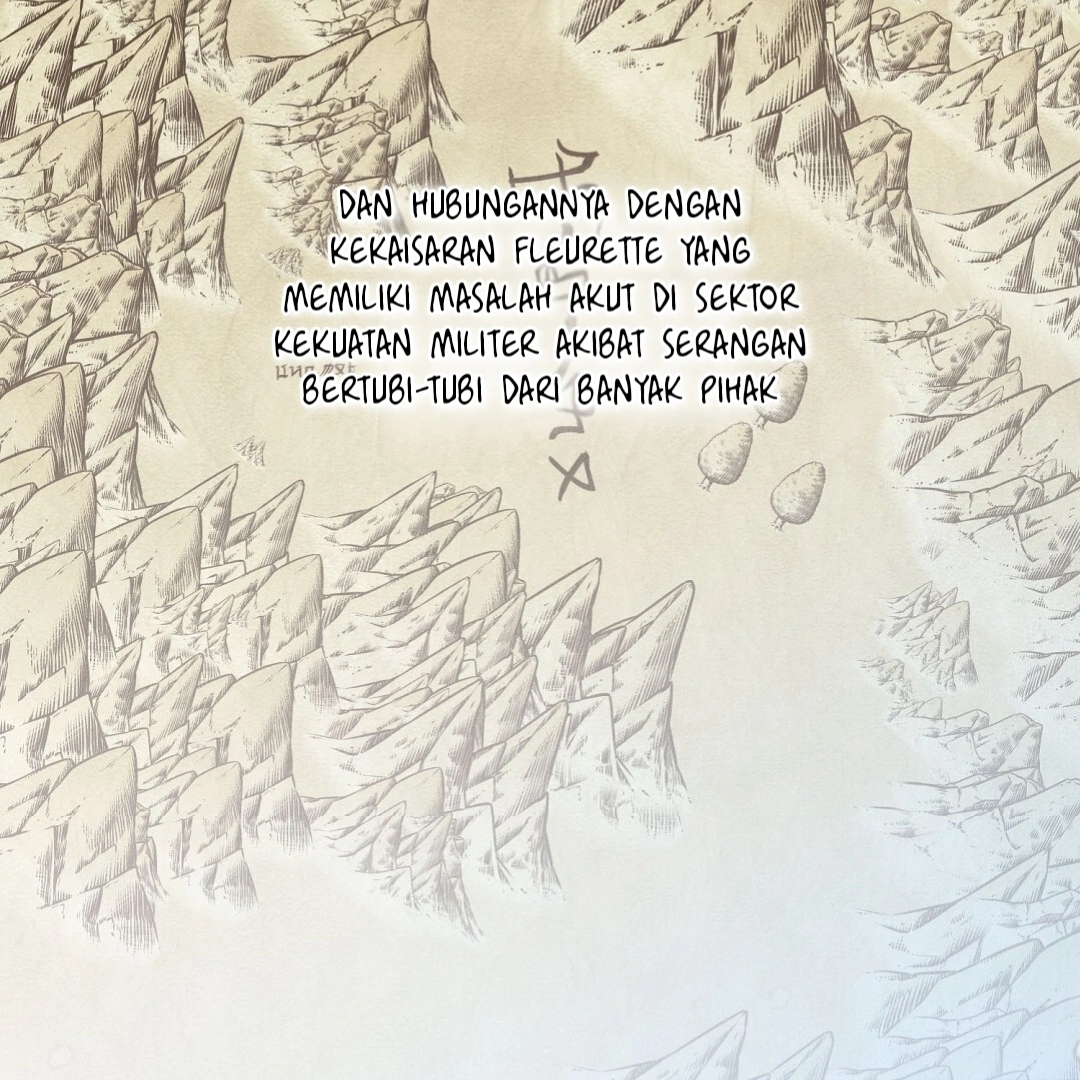 DAN HUBUNGANNYA DENGAN
KEKAISARAN FLEURETTE YANG
MEMILIKI MASALAH AKUT DI SEKTOR
KEKUATAN MILITER AKIBAT SERANGAN
BERTUBI-TUBI DARI BANYAK PIHAK